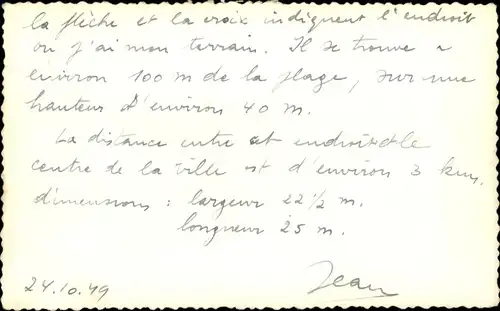 la flèche et la croix indiquent l'endroit
où j'ai mon terrain. Il se trouve a
environ 100 m de la plage, sur une
hauteur d'environ 40 m.
La distance entre cet endroit et le
centre de la ville est d'environ 3 km.
dimensions : largeur 22 1/2 m.
longueur 25 m.
Jean
24.10.49